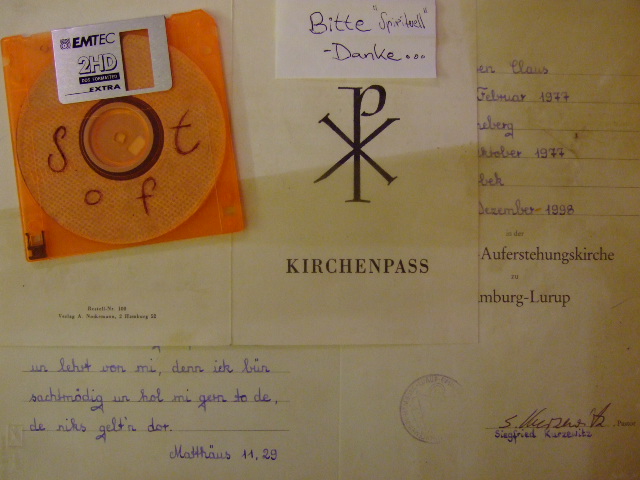 EMTEC
2HD
DOS FORMATTED
EXTRA
Soft
Bitte "Spirituell"
-Danke...
KIRCHENPASS
Bestell-Nr. 100
Verlag A. Neidermann, 2 Hamburg 55
en Claus
Februar 1977
eberg
ktober 1977
bek
Dezember 1998
in der
-Auferstehungskirche
zu
mburg-Lurup
un lehrt von mi, denn ick bün
sachtmödig un hol mi gern to de,
de niks gelt'n dor.
Matthäus 11, 29
Siegfried Kurzewitz
Pastor